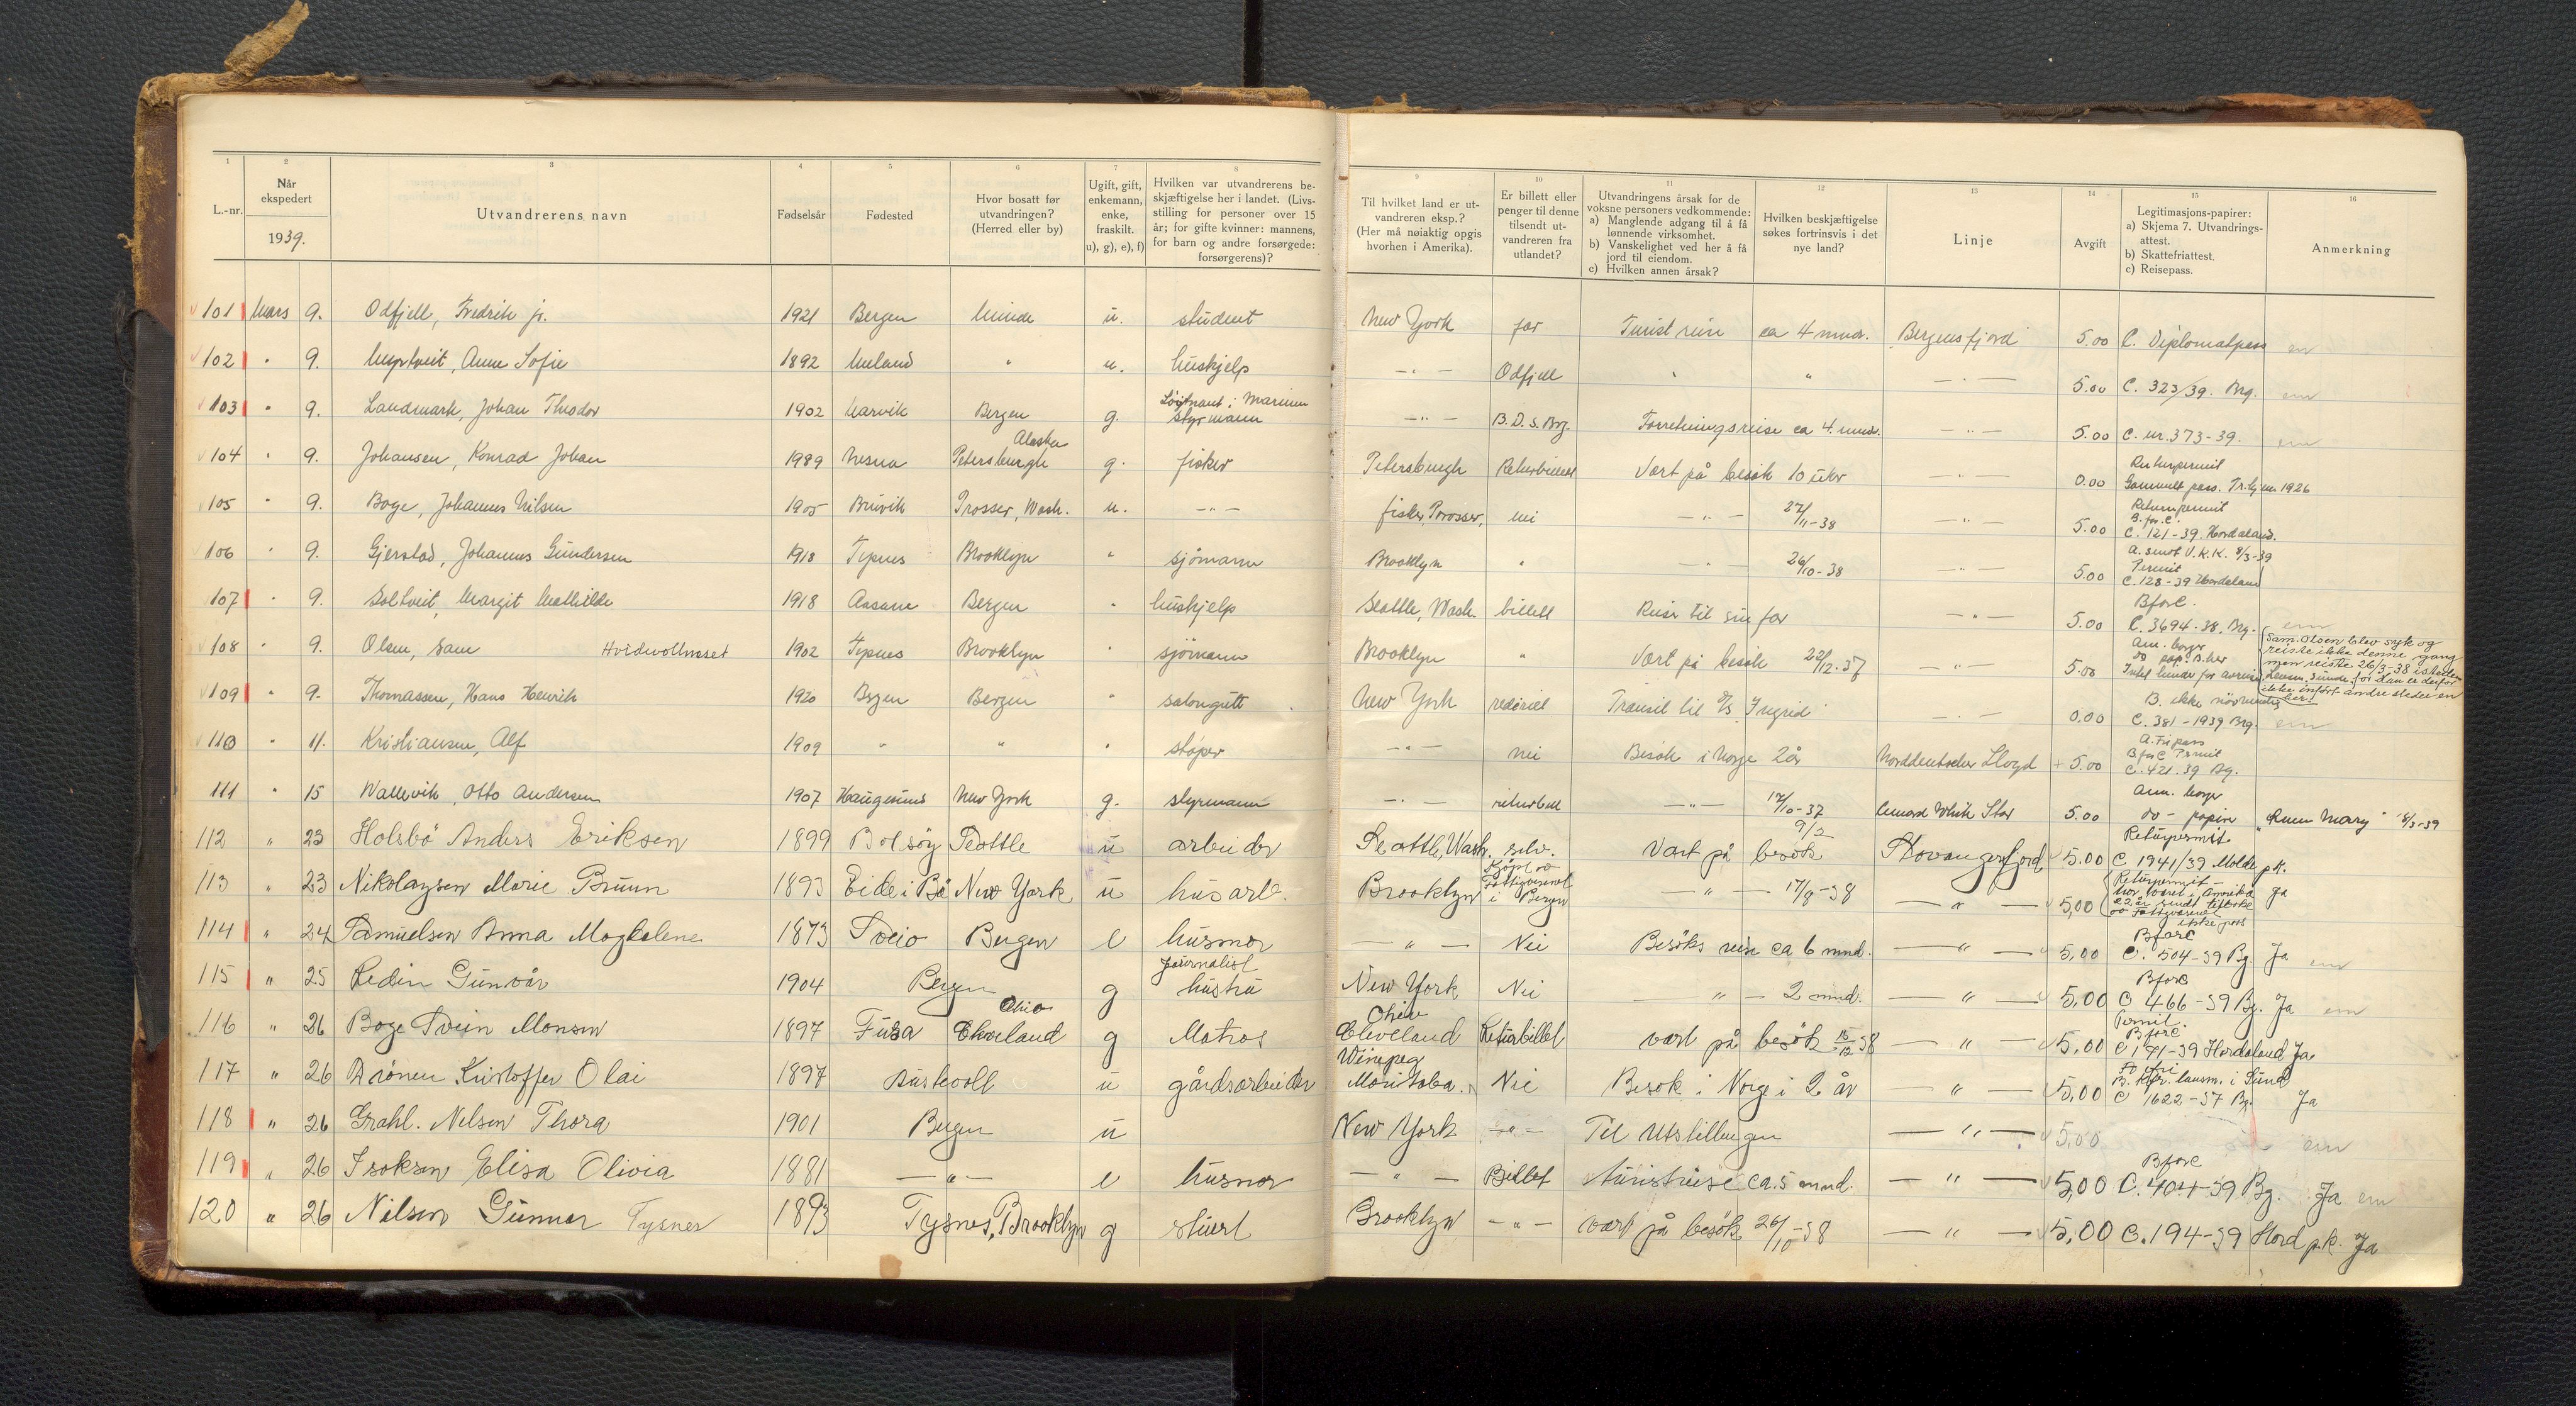 1 2 3 4 5 6 7 8 9 10 11 12 13 14 15 16
L.-nr.
Når ekspedert
1939.
Utvandrerens navn
Fødselsår
Fødested
Hvor bosatt før utvandringen? (Herred eller by)
Ugift, gift, enkemann, enke, fraskilt. u), g), e), f)
Hvilken var utvandrerens beskjæftigelse her i landet. (Livsstilling for personer over 15 år; for gifte kvinner: mannens, for barn og andre forsørgede: forsørgerens)?
Til hvilket land er utvandreren eksp.? (Her må nøiaktig opgis hvorhen i Amerika).
Er billett eller penger til denne tilsendt utvandreren fra utlandet?
Utvandringens årsak for de voksne personers vedkommende:
a) Manglende adgang til å få lønnende virksomhet.
b) Vanskelighet ved her å få jord til eiendom.
c) Hvilken annen årsak?
Hvilken beskjæftigelse søkes fortrinsvis i det nye land?
Linje
Avgift
Legitimasjons-papirer:
a) Skjema 7. Utvandrings-attest.
b) Skattefriattest.
c) Reisepass.
Anmerkning
101 Mars 9. Odfjell, Fredrik jr. 1921 Bergen Minde u. student New York far Turist reise ca 4 mndr. Bergensfjord 5.00 C. Diplomatpass em
102 " 9. Anne Sofie 1892 Meland " u. hushjelp -"- Odfjell " " -"- 5.00 C. 323/39. Brg. em
103 " 9. Landmark, Johan Thodor 1902 Narvik Bergen g. Løytnant i Marinen styrmann -"- B.D.S. Brg. Forretningsreise ca 4 mndr. -"- 5.00 C. nr. 373-39. em
104 " 9. Johansen, Konrad Johan 1989 Nesna Petersburgh Alaska g. fisker Petersburgh Returbillett Vært på besøk 10 uker -"- 0.00 Returpermit Gammelt pass. Tr.hjem 1926
105 " 9. Boge, Johannes Nilsen 1905 Bruvik Prosser, Wash. u. -"- fisker, Prosser, nei -"- 27/11-38 -"- 5.00 Returnpermit B. for C. C. 121-39. Hordaland.
106 " 9. Gjerstad, Johannes Gundersen 1918 Tysnes Brooklyn " sjømann Brooklyn " -"- 26/10-38 -"- 5.00 A. sendt V.K.K. 8/3-39 Permit C. 128-39 Hordaland
107 " 9. Soltveit, Margit Mathilde 1918 Aasane Bergen " hushjelp Seattle, Wash. billett Reise til sin far -"- 5.00 B for C. C. 3694-38. Brg. em
108 " 9. Olsen, Sam Hvidevollneset 1902 Tysnes Brooklyn " sjømann Brooklyn " Vært på besøk 22/12-37 -"- 5.00 Am. borger do pap. B. her Intet hinder for avreise Lensm. Sunde. Sam. Olsen blev syk og reiste ikke denne gang men reiste 26/3-38 isteden for dan er derfor ikke inført andre steder en her!
109 " 9. Thomassen, Hans Henrik 1920 Bergen Bergen " salongutt New York rederiet Transit til S/S Ingrid -"- 0.00 B. ikke nødvendig C. 381-1939 Brg. em
110 " 11. Kristiansen, Alf 1909 " " " støper -"- nei Besøk i Norge 2 år Norddeutscher Lloyd + 5.00 A. Fripass B for C Permit C. 421-39 Bg.
111 " 15 Wallevik, Otto Andersen 1907 Haugesund New York g. styrmann -"- returbill -"- 17/10-37 Cunard White Star 5.00 Am. borger do - papirer "Queen Mary" 18/3-39
112 " 23 Holsbø Anders Eriksen 1899 Bolsøy Seattle u arbeider Seattle, Wash. selv. Vært på besøk 9/2 Stavangerfjord 5.00 Returpermit C 1941/39 Molde pk.
113 " 23 Nikolaysen Marie Bruun 1893 Eide i Bø New York u husarb. Brooklyn Kjøpt av Fattigvesenet i Bergen -"- 17/8-38 -"- 5,00 Returpermit - har været i Amerika 22 år sendt tilbake av Fattigvesenet ikke pass Ja
114 " 24 Samuelsen Anna Magdalene 1873 Sveio Bergen e husmor -"- Nei Besøks reise ca 6 mnd. -"- 5,00 B for C C. 504-39 Bg. Ja em
115 " 25 Ledin Gunvår 1904 Bergen g journalist hustru New York Nei -"- 2 mnd. -"- 5,00 B for C C 466-39 Bg. Ja em
116 " 26 Boge Svein Monsen 1897 Fusa Cleveland Ohio g Matros Cleveland Ohio Returbillet vært på besøk 15/12 38 -"- 5,00 Permit. B for C C 141-39 Hordaland Ja
117 " 26 Drønen Kristoffer Olai 1897 Austevoll u gårdsarbeider Winipeg Manitoba. Nei Besøk i Norge i 2 år -"- 5,00 B. Kfr. lensm. i Sund C 1622-37 Bg. Ja
118 " 26 Grahl-Nilsen Thora 1901 Bergen u New York -"- Til Utstillingen -"- 5,00 em
119 " 26 Isaksen Elisa Olivia 1881 -"- e husmor -"- Billet turistreise ca. 5 mnd. -"- 5,00 B for C C. 404-39 Bg. Ja em
120 " 26 Nilsen Gunnar Tysnes 1893 Tysnes, Brooklyn g stuert Brooklyn -"- vært på besøk 26/10-38 -"- 5,00 C. 194-39 Hord p.k. Ja